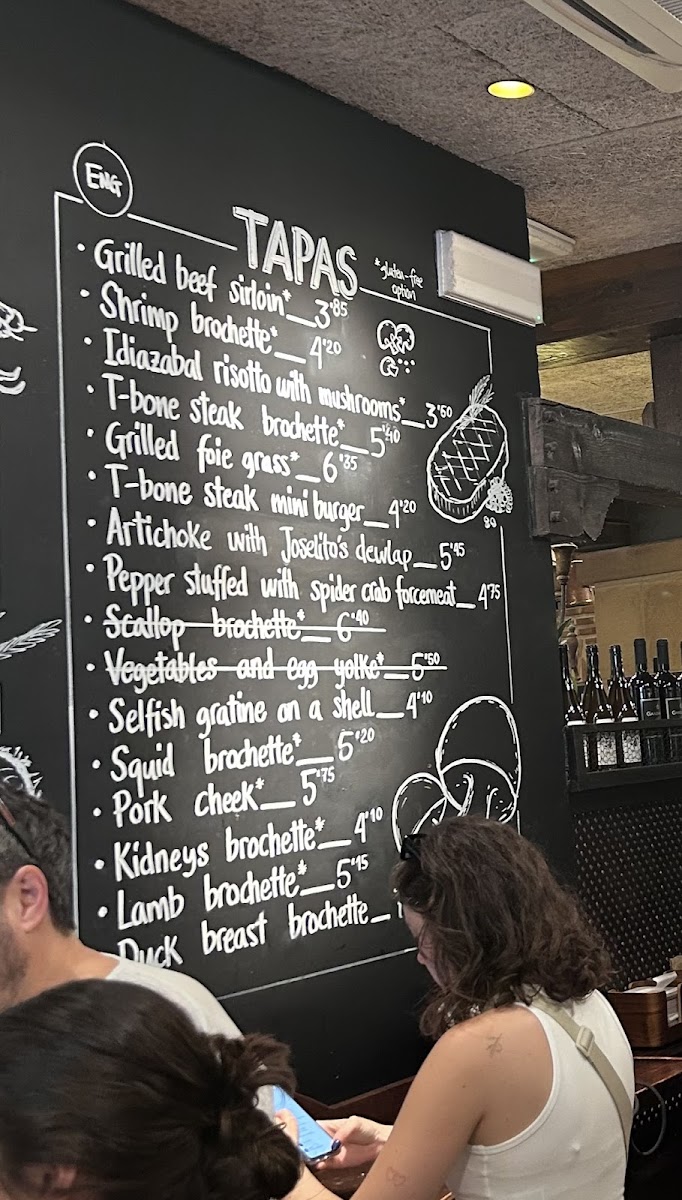 ENG
TAPAS
*gluten-free
option
• Grilled beef sirloin*__3'85
• Shrimp brochette*__4'20
• Idiazabal risotto with mushrooms*__3'60
• T-bone steak brochette*__5'40
• Grilled foie grass*__6'35
• T-bone steak mini burger__4'20
• Artichoke with Joselito's dewlap__5'45
• Pepper stuffed with spider crab forcemeat__4'75
• Scallop brochette*__6'40
• Vegetables and egg yolke*__5'50
• Selfish gratine on a shell__4'10
• Squid brochette*__5'20
• Pork cheek*__5'75
• Kidneys brochette*__4'10
• Lamb brochette*__5'45
Duck breast brochette__